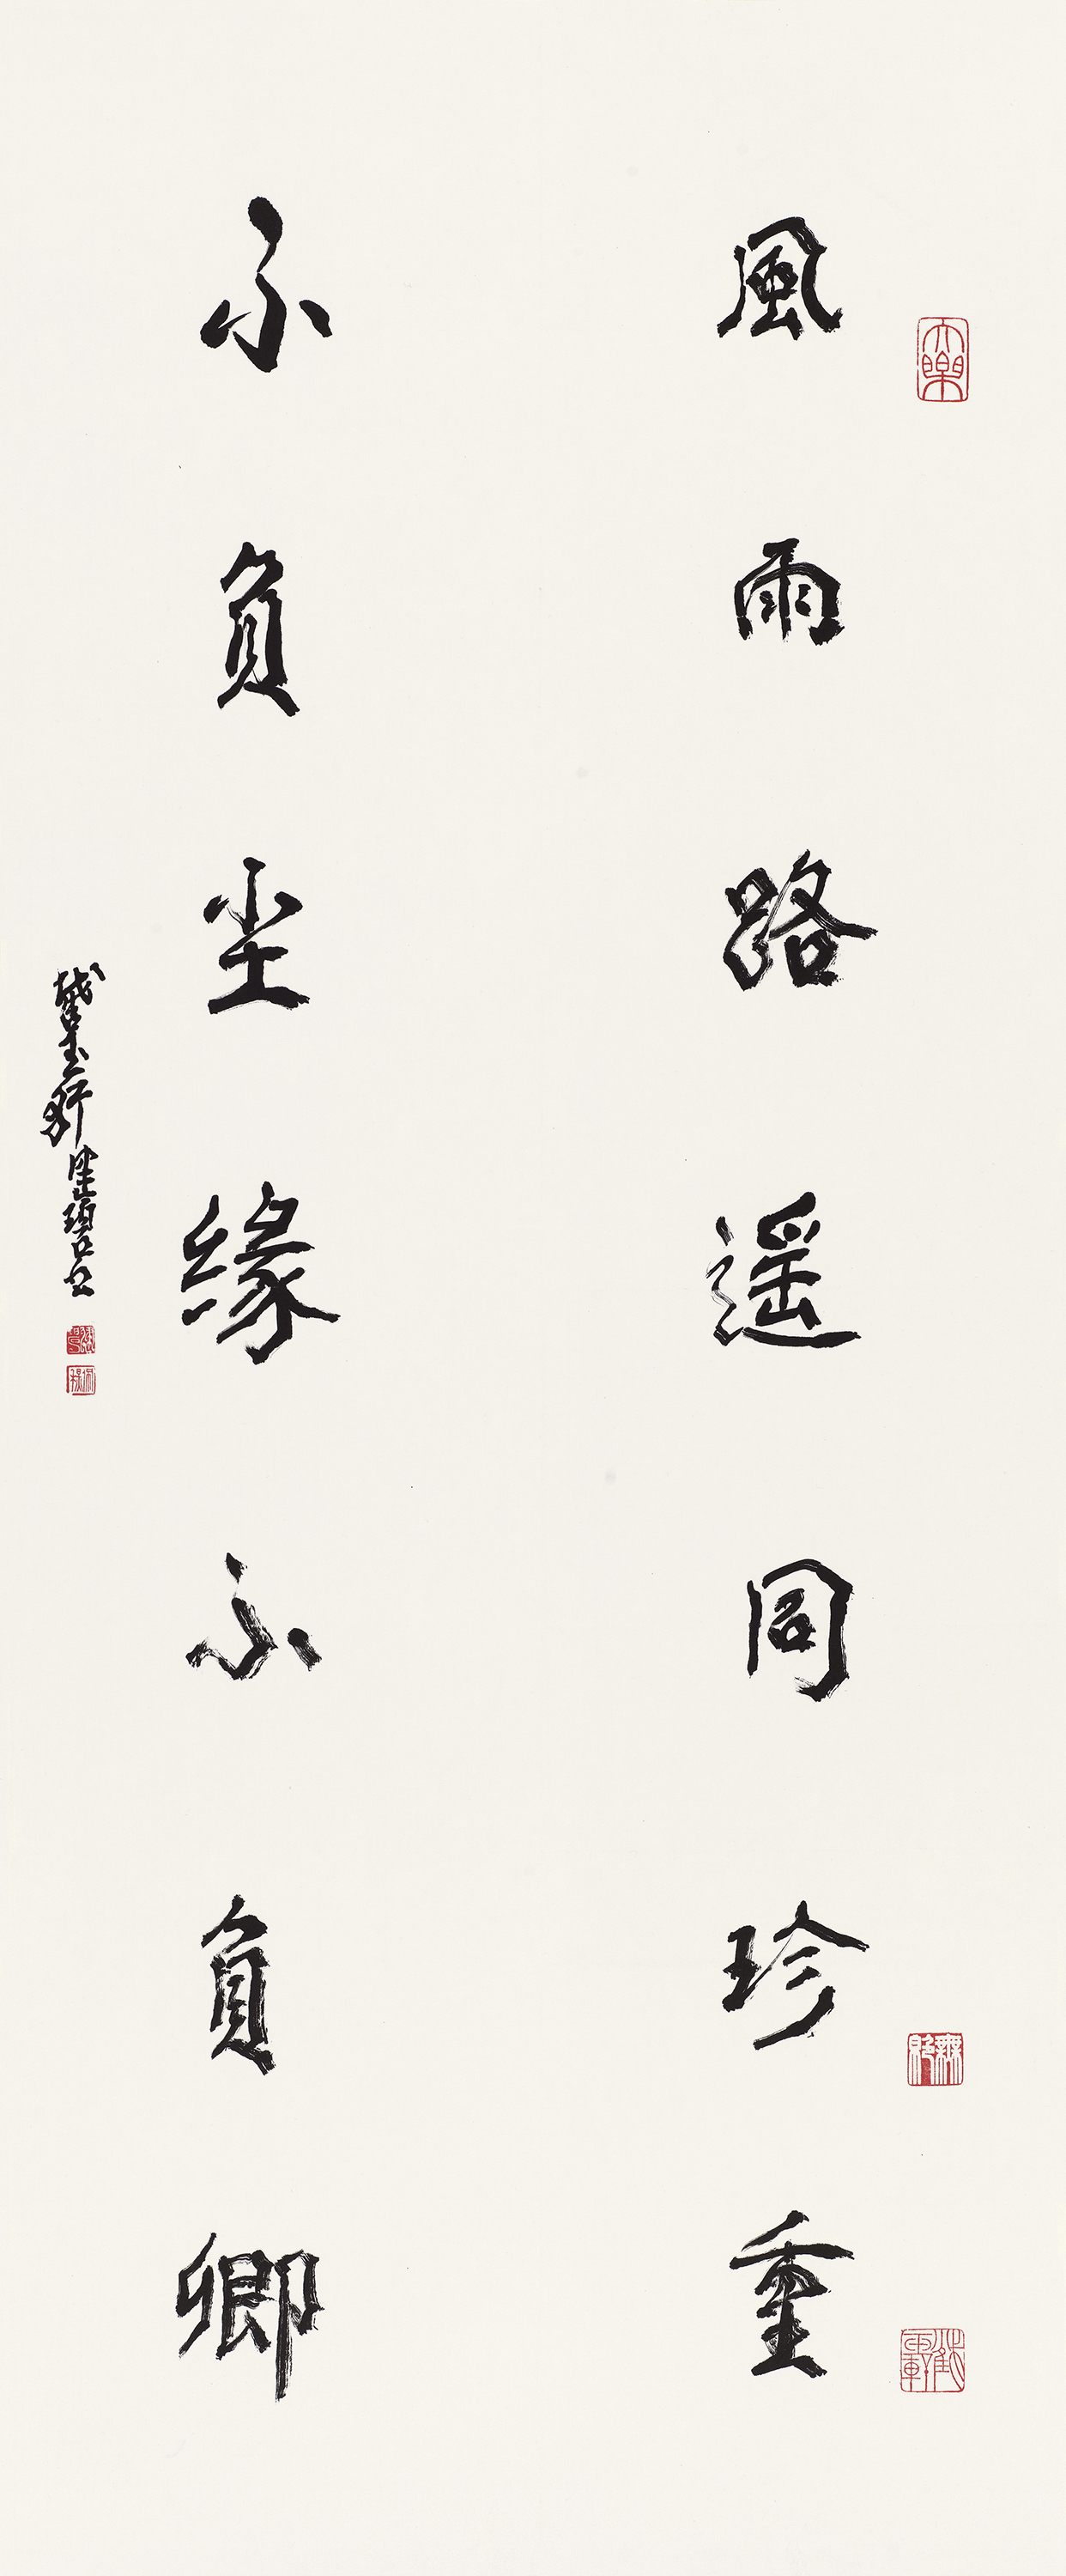 風雨路遥同珍重
不負尘緣不負卿